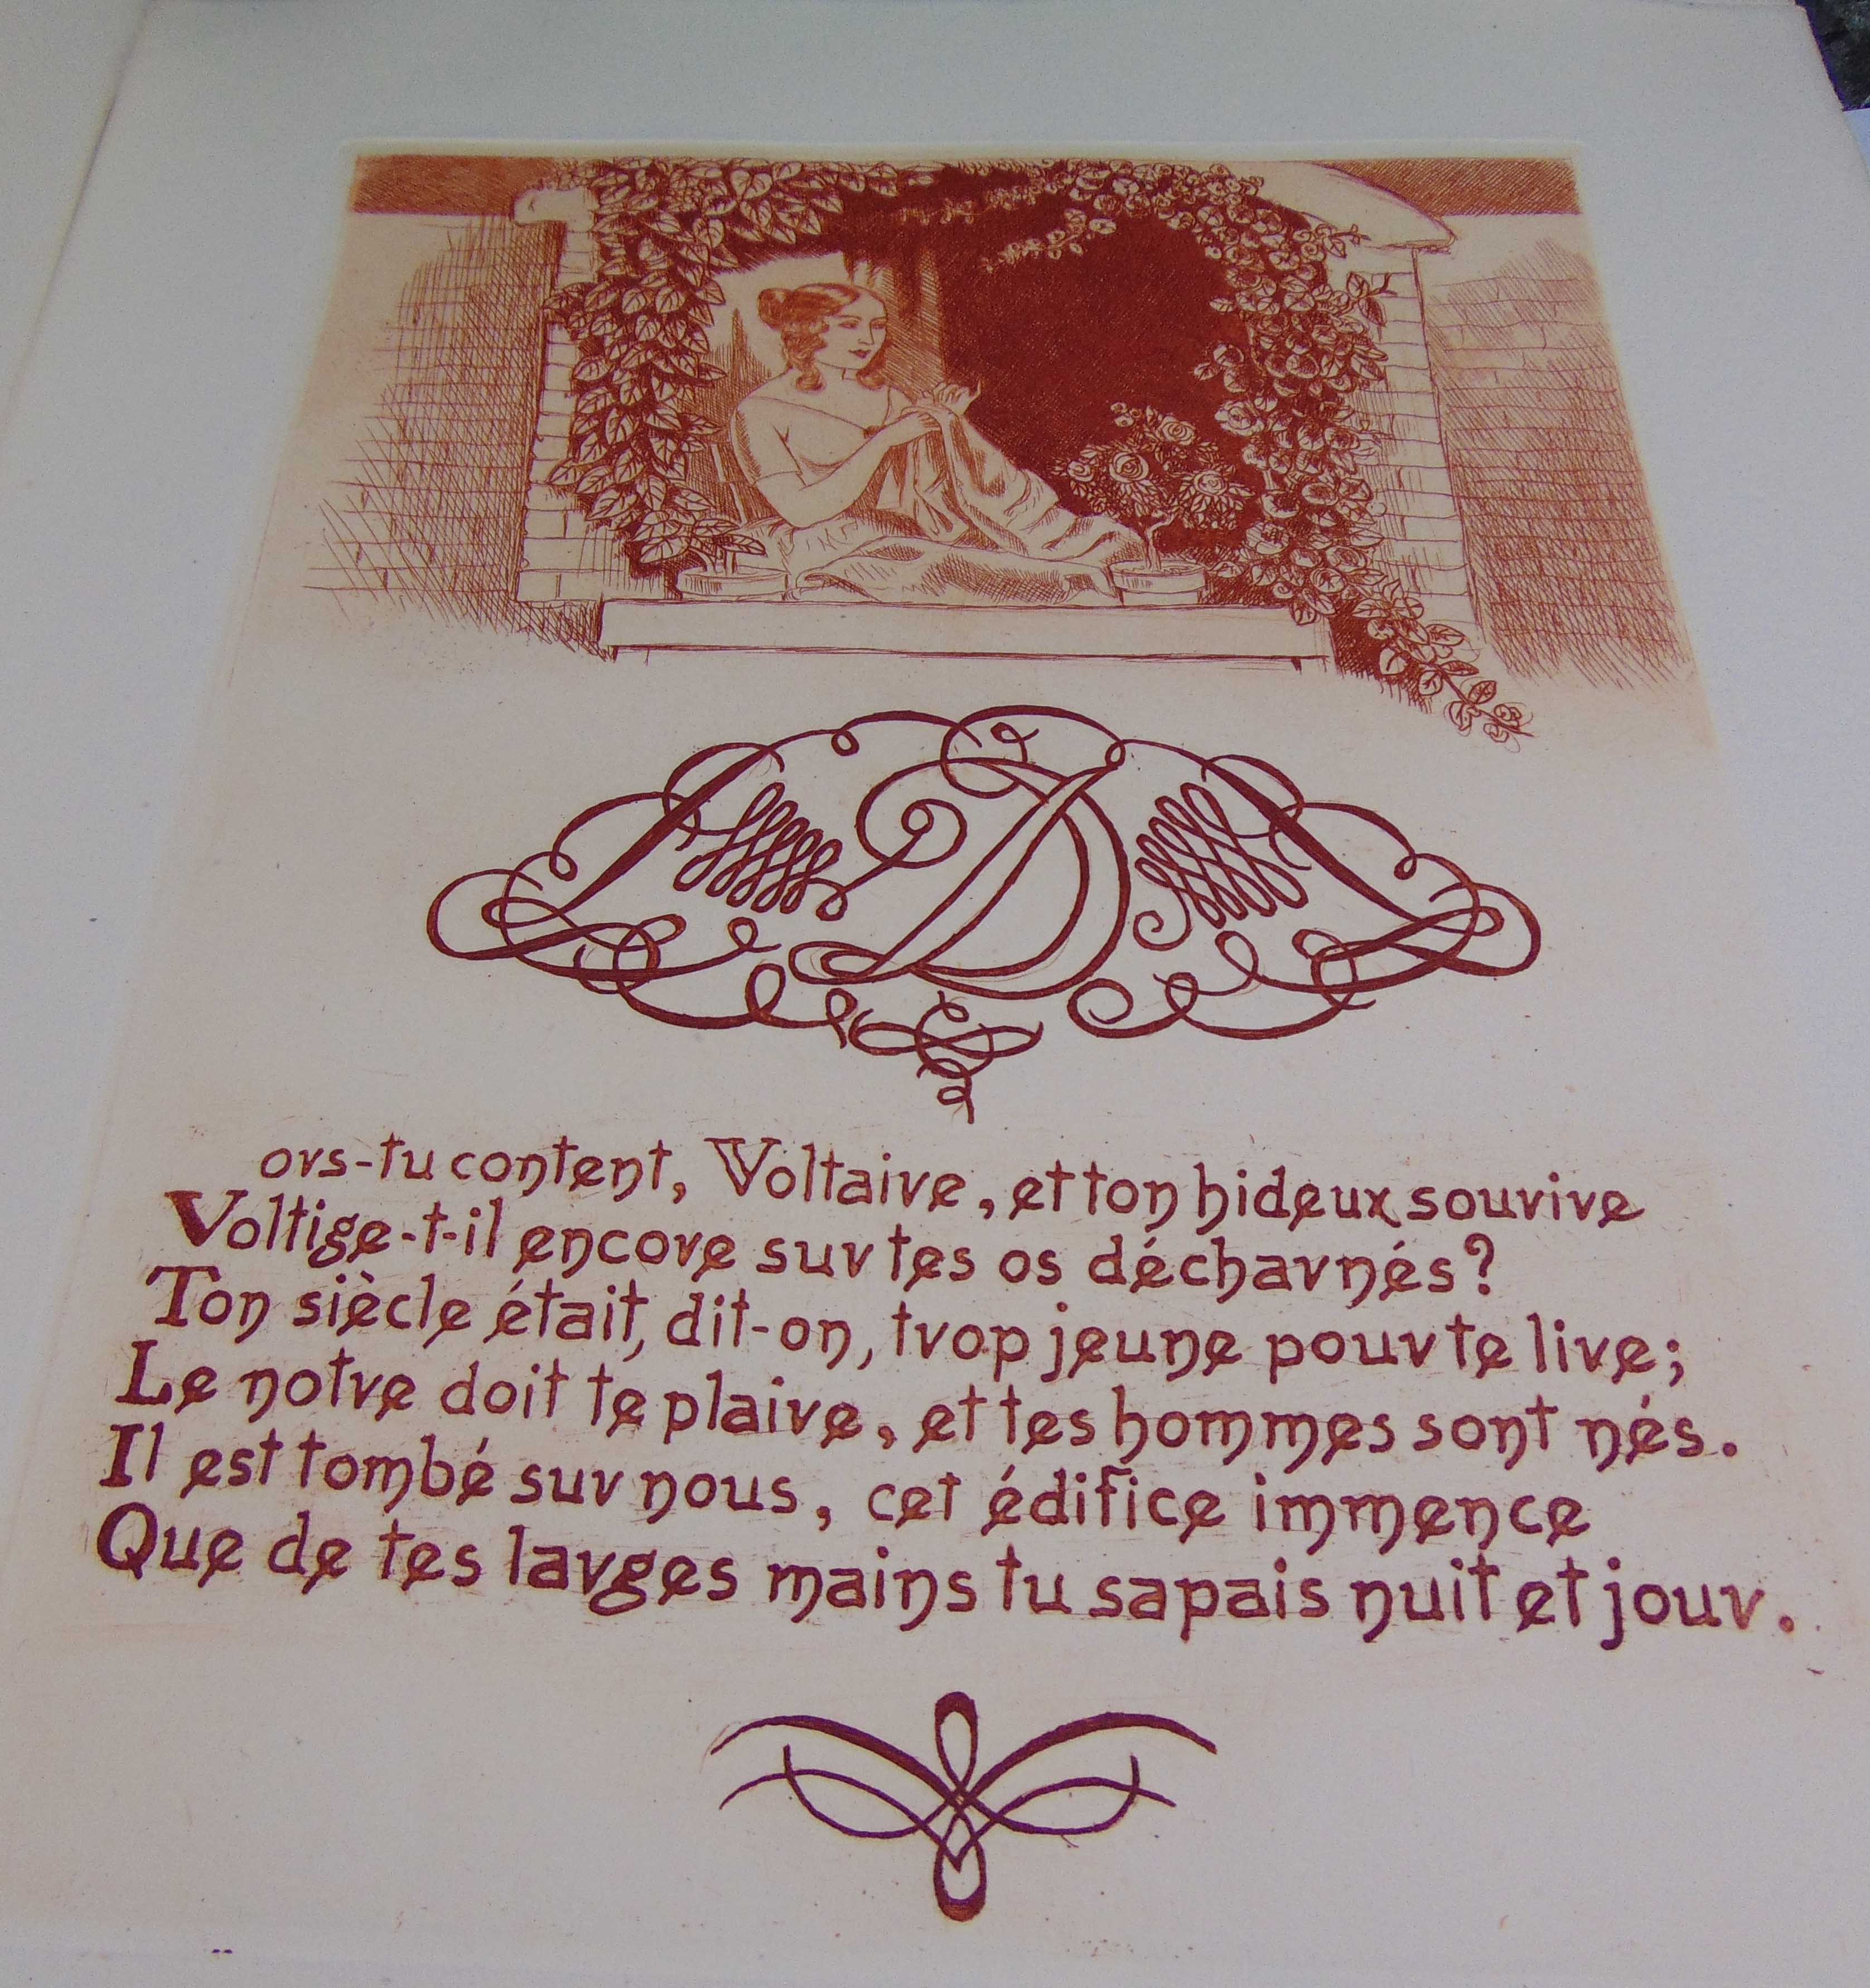 D
ors-tu content, Voltaire, et ton hideux sourire
Voltige-t-il encore sur tes os décharnés?
Ton siècle était, dit-on, trop jeune pour te lire;
Le notre doit te plaire, et tes hommes sont nés.
Il est tombé sur nous, cet édifice immence
Que de tes larges mains tu sapais nuit et jour.